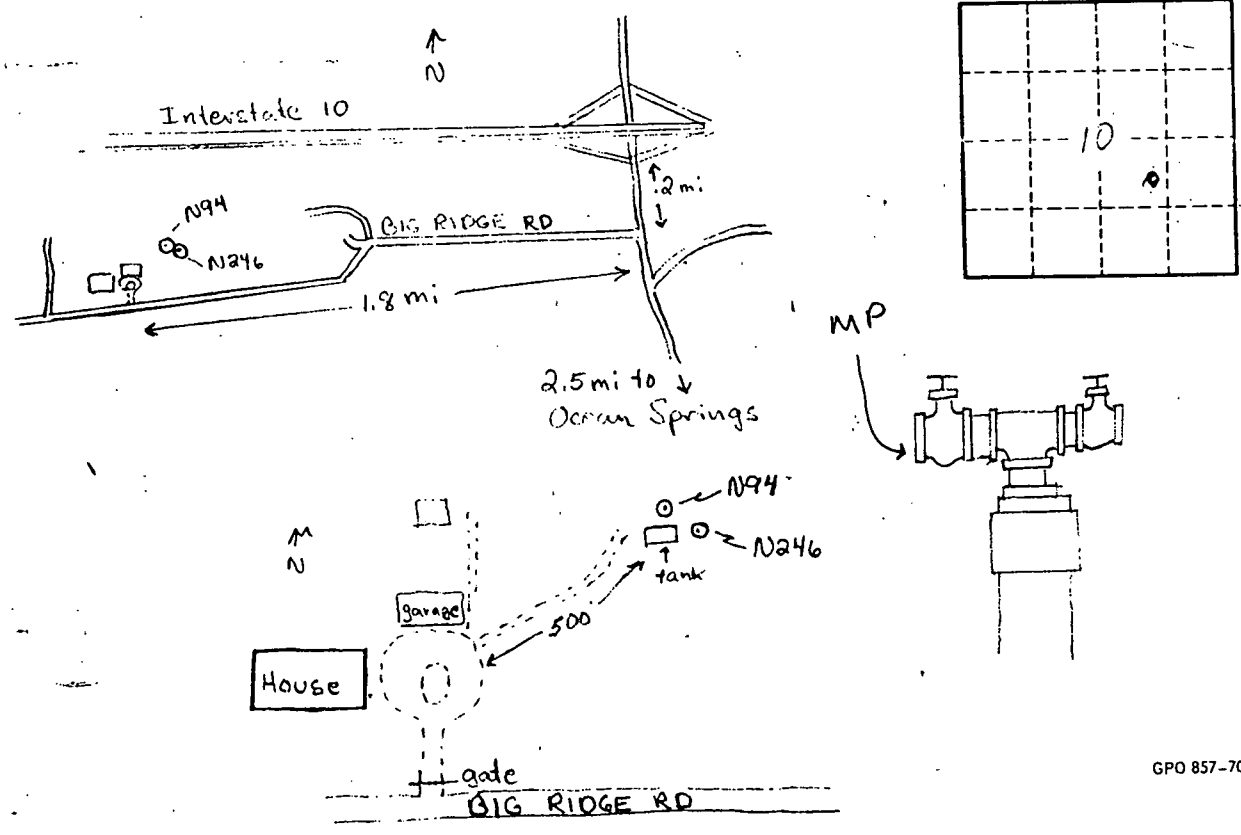 N
Interstate 10
10
.2 mi
N94
BIG RIDGE RD
N246
1.8 mi
MP
2.5 mi to
Ocean Springs
N94
N
N246
tank
garage
500'
House
gate
BIG RIDGE RD
GPO 857-70